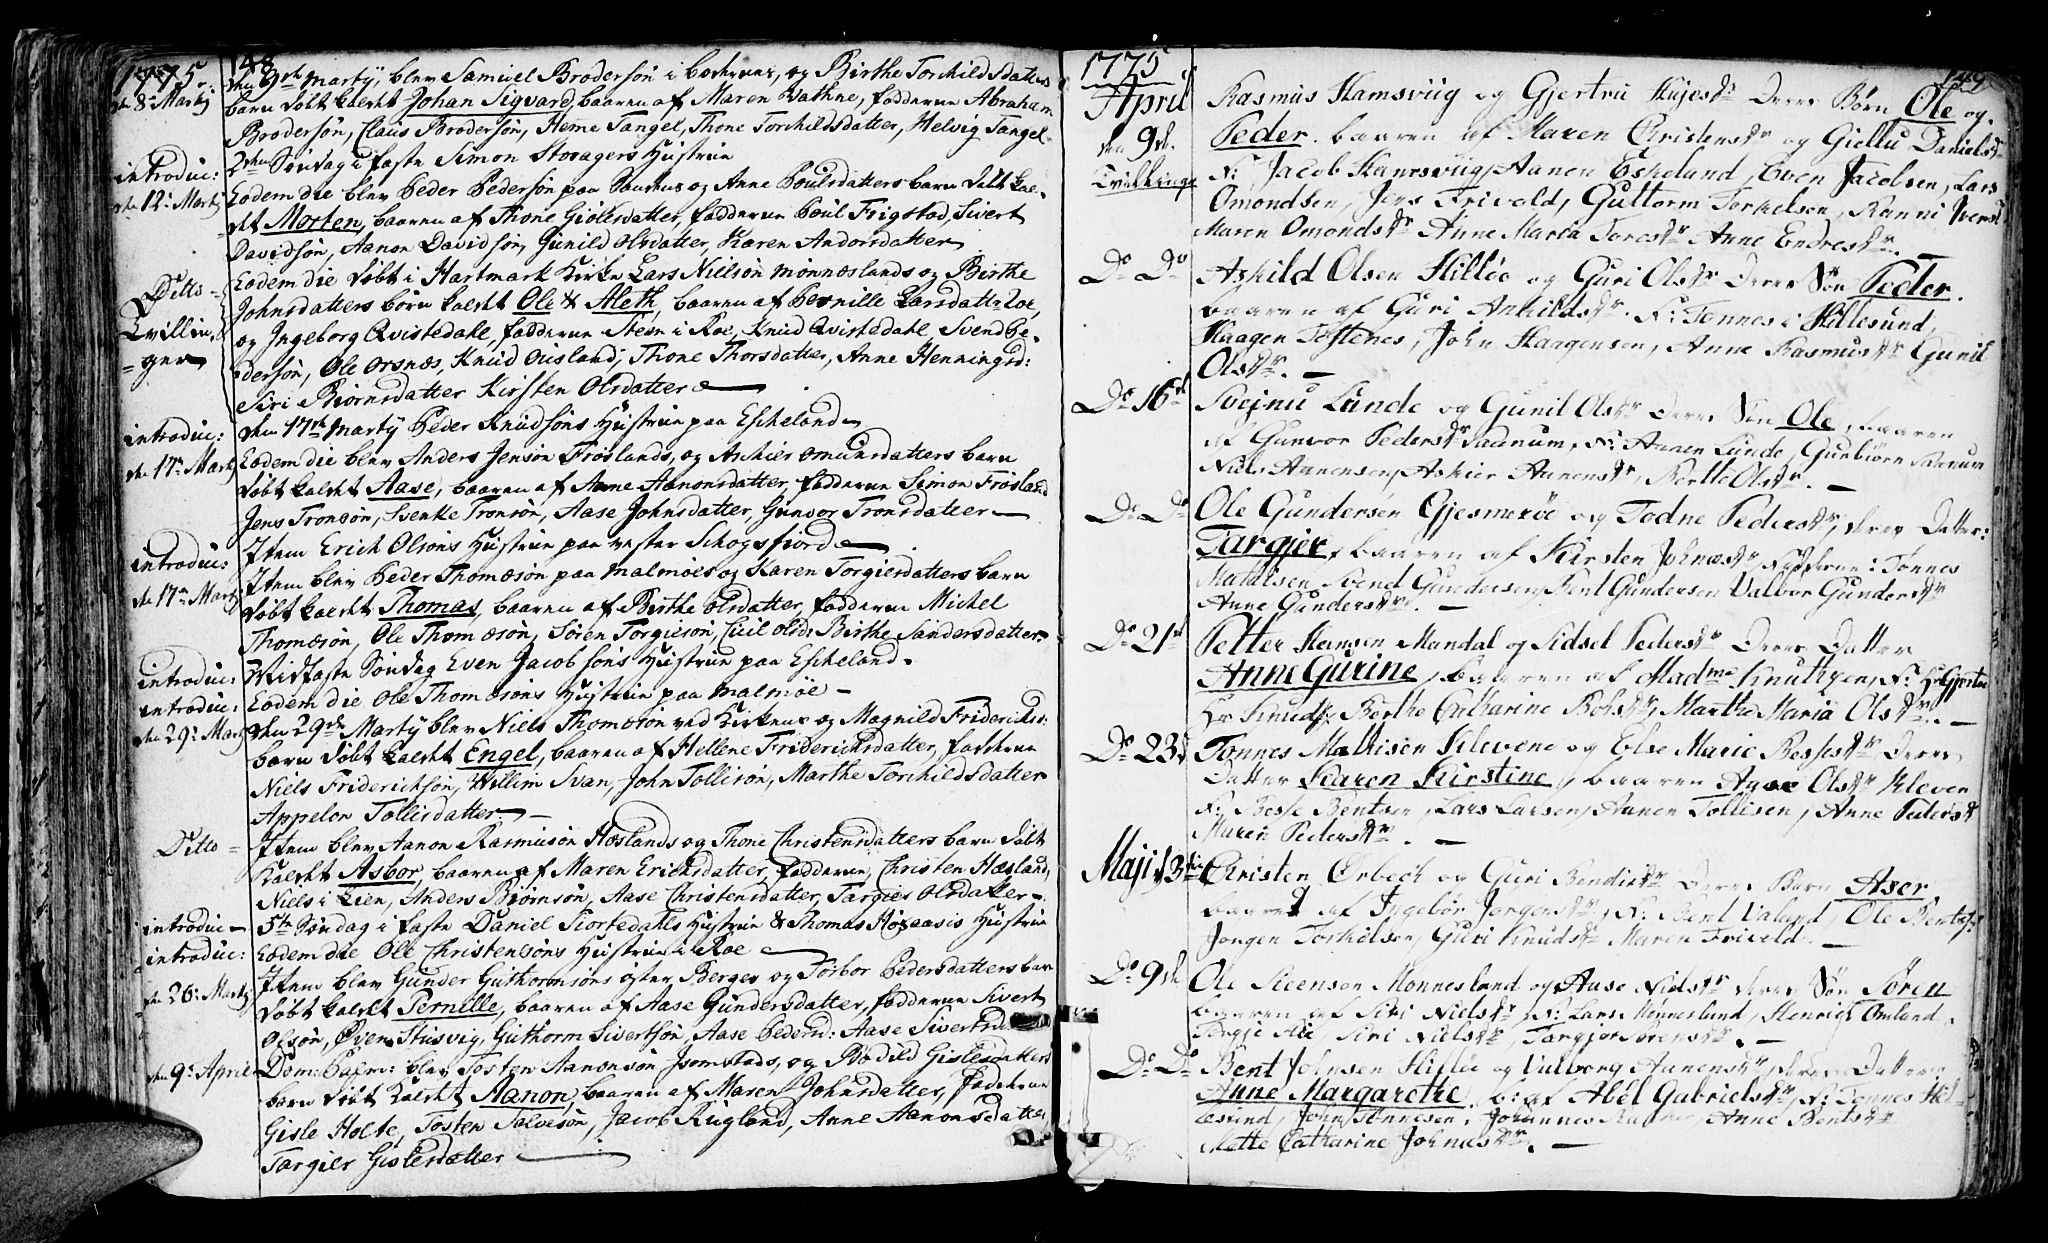 148
1775.
d. 8: Martij
Den 9de Martij, blev Samuel Brodersøn i boehvens, og Birthe Torchildsdatters
barn døbt kaldet Johan Sigvard, baaren af Maren Vathne, fadderne Abraham
Brodersøn, Claus Brodersøn, Heme Tangel, Thone Torchildsdatter, Helvig Tangel.
introduc:
2den Søndag i faste Simon Storagers Hustrue
d. 12: Martij
Eodem die blev Peder Pedersøn paa og Anne Poulsdatters barn døbt kal-
det Morten, baaren af Thone Gislesdatter, fadderne Poul Frigstad, Sivert
Davidsøn, Aanon Davidsøn, Gunild Olsdatter, Karen Andorsdatter
Ditto
Tvillin-
ger
Eodem die døbt i Hartmark Kirke Lars Nielsøn Mønneslands og Birthe
Johnsdatters børn kaldet Ole & Aleth, baaren af Pernille Larsdatter Roe,
og Ingeborg Qvistedahl, fadderne Steen i Roe, Knud Qvistedahl, Svend Pe-
dersøn, Ole Orsnæs, Knud Ousland, Thone Thorsdatter, Anne Henningsd:
Siri Biørnsdatter Kirsten Olsdatter
introduc:
den 17de Martij Peder Knudsøns Hustrue paa Eskeland
d. 17: Martij
Eodem die blev Anders Jensøn Frøslands, og Aschier Omundsdatters barn
døbt kaldet Aase, baaren af Anne Aanonsdatter, fadderne Simon Frøsland
Jens Tronsøn, Svenke Tronsøn, Aase Johnsdatter, Gunvor Tronsdatter
introduc:
Item Erich Olsøns Hustrue paa vester Schogsfiord
d. 17: Martij
Item blev Peder Thomæsøn paa Malmøe og Karen Torgiersdatters barn
døbt kaldet Thomas, baaren af Birthe Olsdatter, fadderne Michel
Thomæsøn, Ole Thomæsøn, Søren Torgiesøn, Cicil Olsd: Birthe Sandersdatter
introduc:
Midfaste Søndag Even Jacobsøns Hustrue paa Eskeland
introduc:
Eodem die Ole Thomæsøns Hustrue paa Malmøe
d. 29: Martij
den 29de Martij blev Niels Thomæsøn ved Kirkens og Magnild Fridericksd:
barn døbt kaldet Engel, baaren af Hellene Fridericksdatter, fadderne
Niels Fridericksøn, Willim Ivan, John Tollisøn, Marthe Torchildsdatter
Appelon Tollisdatter
Ditto
Item blev Aanon Rasmusøn Hæslands og Thone Christensdatters barn døbt
kaldet Asbor, baaren af Maren Ericksdatter, fadderne Christen Hæsland,
Niels i Lien, Anders Biørnsøn, Aase Christensdatter, Targier Olsdatter
introduc
5te Søndag i faste Daniel Stortedals Hustrue & Thomas Hustrue
introduc:
Eodem die Ole Christensøns Hustrue i Roe
d. 26: Martij
Item blev Gunder Guthormsøns øster Berge og Torbor Pedersdatters barn
døbt kaldet Pernille, baaren af Aase Gundersdatter, fadderne Sivert
Olsøn, Øven Stusvig, Guthorm Sivertsøn, Aase Pedersd: Aase Sivertsd
d. 9: April
Dom: Palm: blev Tosten Aanonsøn Jsomstads, og Bodild Gislesdatters
barn døbt kaldet Aanon, baaren af Maren Johnsdatter, fadderne
Gisle Holte, Tosten Salvesøn, Jacob Rugland, Anne Aanonsdatter
Targier Gislesdatter
149
1775
April
den 9de
Tvillinge
Rasmus Hamsviig og Gjertru Deres Børn Ole og
Peder. baaren af Karen Christensdr og Giellu Danielsdr
F: Jacob Hamsviig, Aanen Eskeland, Even Jacobsen, Lars
Omondsen, Jens Friveld, Guttorm Torkelsen, Ranni Iversdr
Maren Omondsdr Anne Maria Toresdr Anne Endresdr.
Do Do
Askild Olsen Hilløe og Guri Olsdr Deres Søn Peder.
baaren af Guri Ankildsdr. F: Tønnes i Hillesund,
Haagen Tostenes, John Haagensen, Anne Rasmusdr Gunil
Olsdr.
Do 16de
Svejnu Lunde og Gunil Olsdr Deres Søn Ole, baaren
af Gunvor Pedersdr Saanum, F: Aanen Lunde, Gunbiørn Saanum
Niels Aanensen, Askier Aanensdr, Berthe Olsdr.
Do Do
Ole Gundersen Gjesmerøe og Todne Pedersdr, deres Datter:
Targjer, baaren af Kirsten Johnesdr, Fadderne: Tønnes
Mathisen Svend Gundersen, Bent Gundersen Valbor Gundersdr
Anne Gundersdr.
Do 21de
Petter Hansen Mandal og Sidsel Pedersdr Deres Datter
Anne Gurine, baaren af Madme Knutzen, F: Hr Gjertsen
Hr Knuds: Berthe Catharine Bohsdr, Marthe Maria Olsdr.
Do 23d
Tønnes Mathisen Klevene og Else Marie Bessesdr Deres
Datter Karen Kirstine, baaren Aase Olsdr Kleven
F: Besse Bentsen, Lars Larsen, Aanen Tollisen, Anne Pedersd
Maren Pedersdr.
Maji d 3die
Christen Orbech og Guri Bendixdr Deres Barn Aser
baaret af Ingebør Jørgensdr, F: Bent Valand, Ole Bents:
Jørgen Torkilsen Guri Knudsdr Maren Friveld.
Do 9de
Ole Steensen Monnesland og Aase Nielsdr deres Søn Søren
baaren af Siri Nielsdr, F: Lars Monnesland, Henrich Omland,
Tarjie Aie, Siri Nielsdr, Targjer Sørensdr.
Do Do
Bent Johnsen Hilløe og Valborg Aanensdr, deres Datter
Anne Margarethe, b: af Abel Gabrielsdr, F: Tønnes Hil-
lesund, John Tønnesen, Johannes Anne Bentsdr
Mette Catharine Johnesdr.